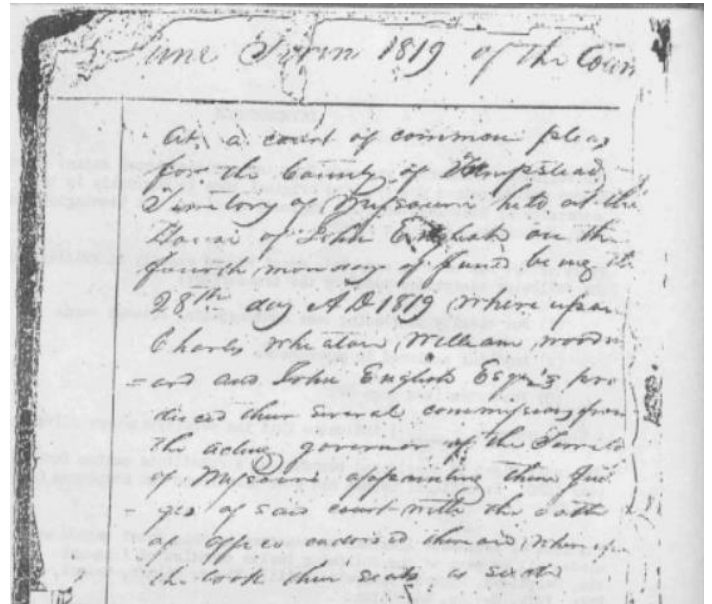 June Term 1819 of the Coun
At a court of common pleas
for the County of Hempstead
Territory of Missouri held at the
House of John English on the
fourth monday of June being the
28th day AD 1819 where upon
Charles Wheaton, William woodw
=ard and John English Esqr's pro
duced their several commissions from
the acting governor of the Territo
of Missouri appointing them Jud
-ges of said court with the oath
of office endorsed thereon, where upon
the took their seats as